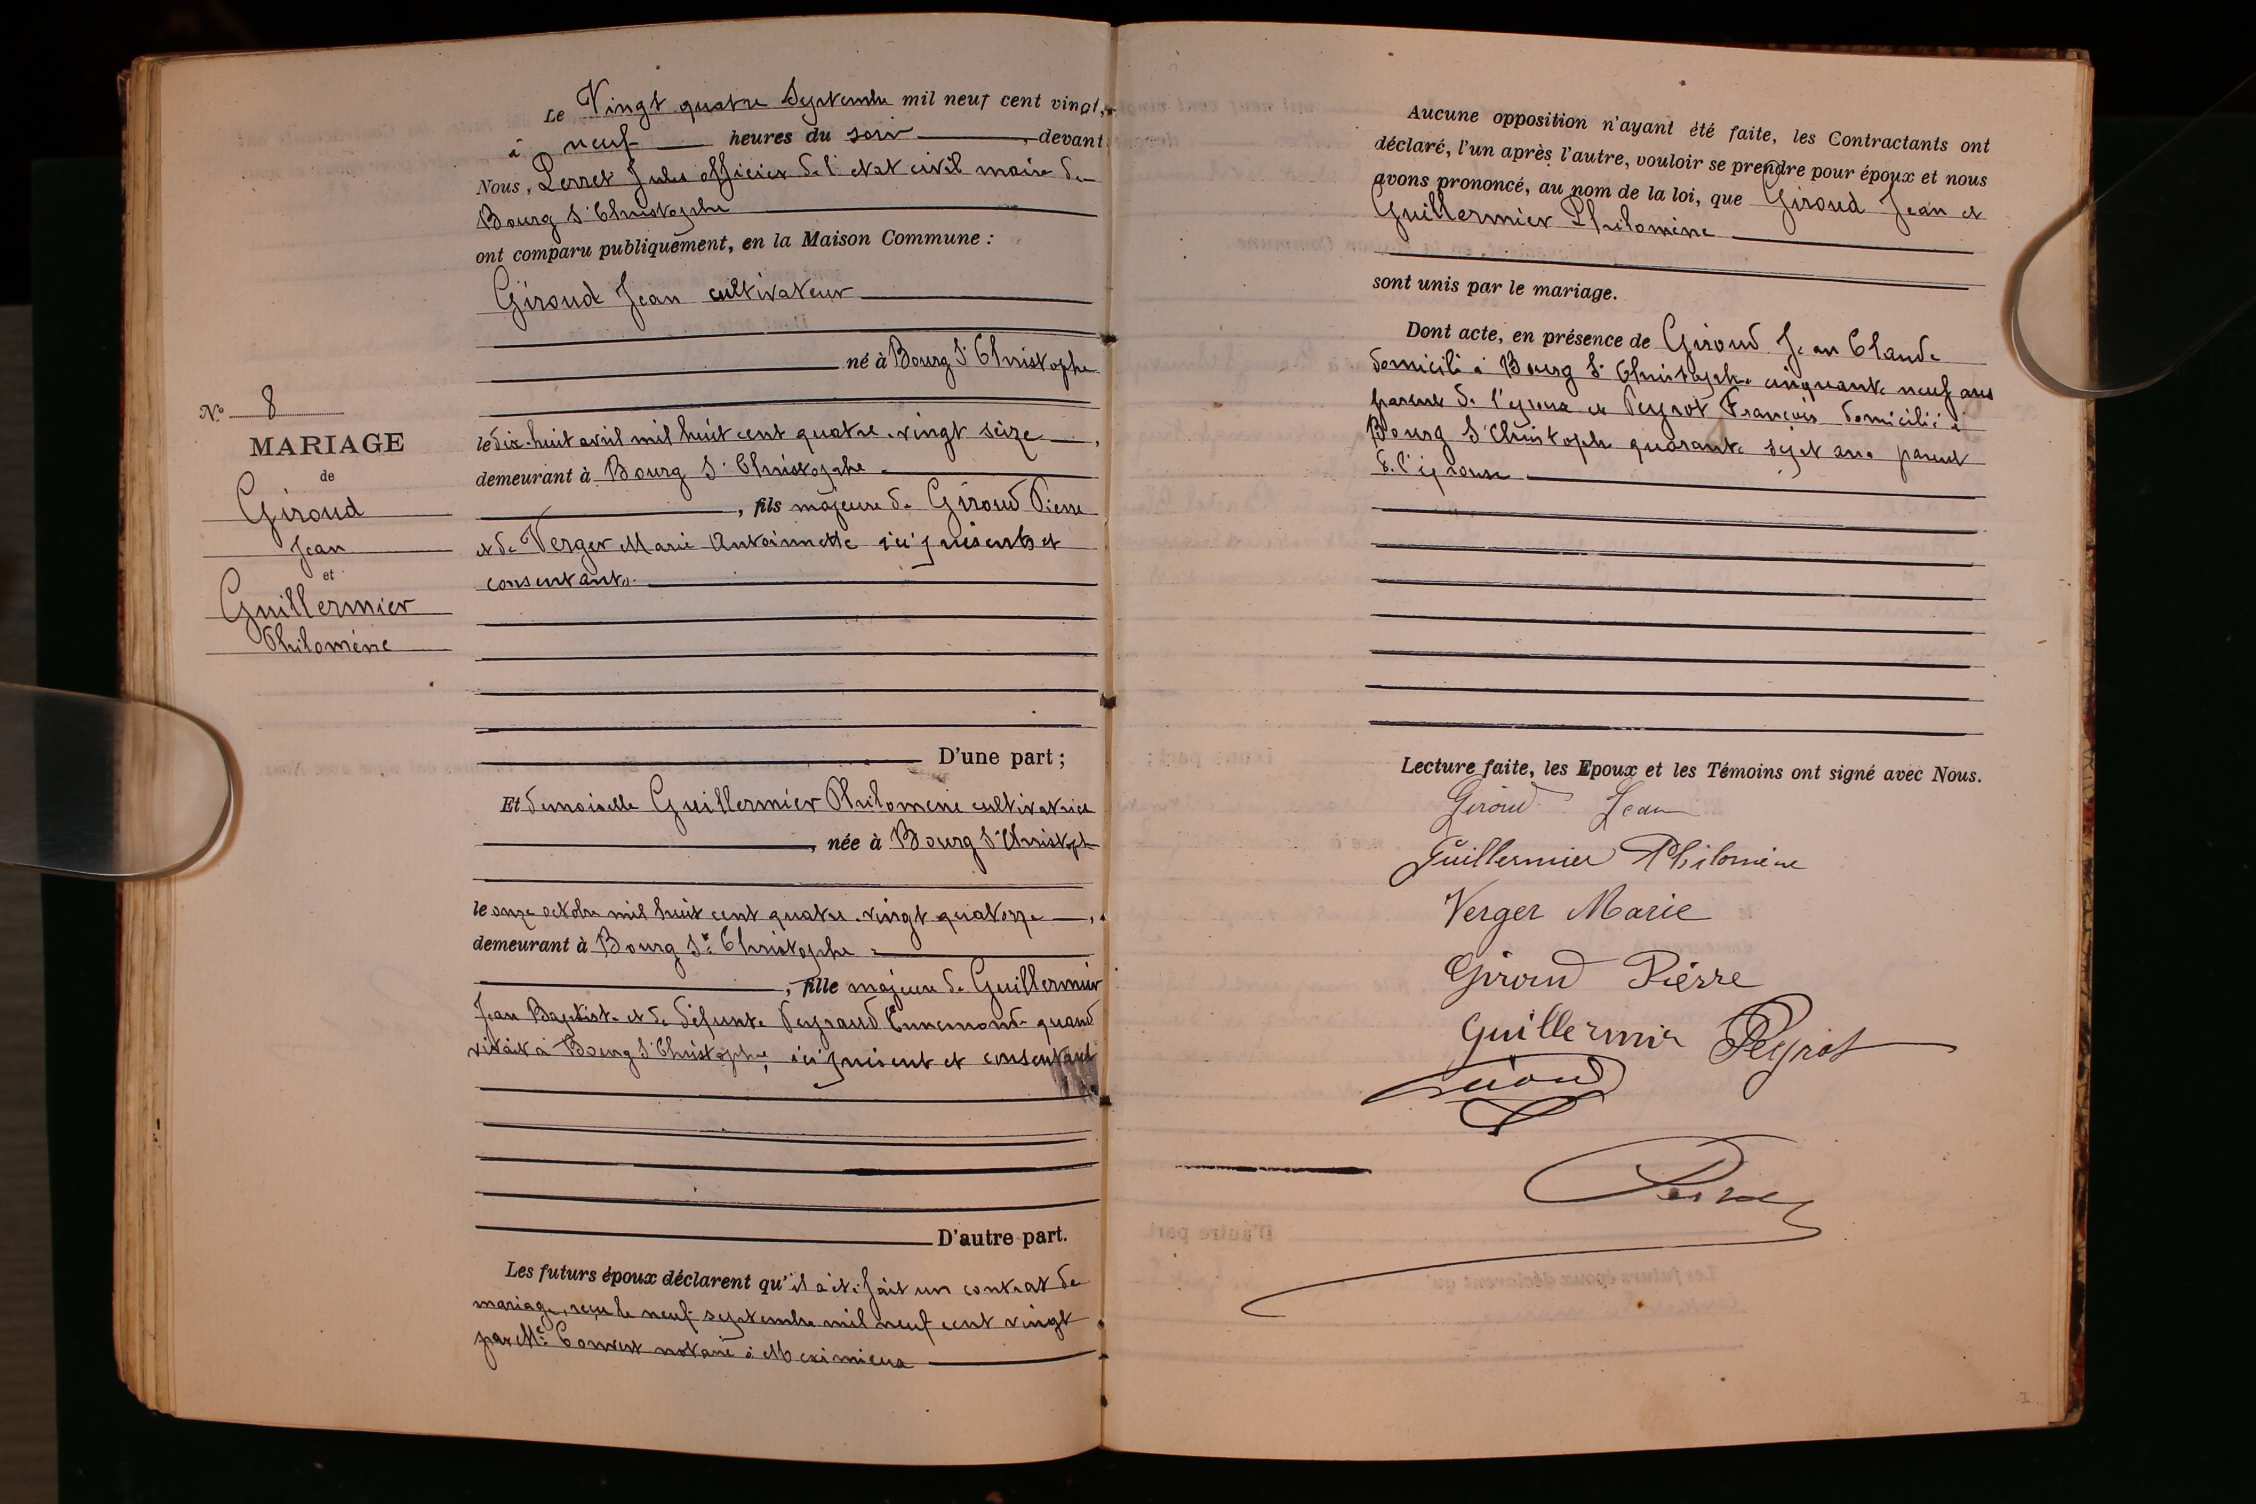 Le Vingt quatre Septembre mil neuf cent vingt,
à neuf heures du soir, devant
Nous, Perret Jules officier de l'état civil maire de
Bourg St Christophe
ont comparu publiquement, en la Maison Commune :
Giroud Jean cultivateur
né à Bourg St Christophe
No 8
MARIAGE
de
Giroud
Jean
et
Guillermier
Philomène
le dix-huit avril mil huit cent quatre-vingt seize,
demeurant à Bourg St Christophe
, fils majeure de Giroud Pierre
et de Verger Marie Antoinnette ici présents et
consentants.
D'une part ;
Et demoiselle Guillermier Philomène cultivatrice
, née à Bourg St Christoph
le onze octobre mil huit cent quatre-vingt quatorze,
demeurant à Bourg St Christophe
, fille majeure de Guillermier
Jean Baptiste et de défunte Peyraud Ennemonde quand
vivait à Bourg St Christophe, ici présent et consentant
D'autre part.
Les futurs époux déclarent qu'il a été fait un contrat de
mariage, reçu le neuf septembre mil neuf cent vingt
par Me Convert notaire à Meximieux
Aucune opposition n'ayant été faite, les Contractants ont
déclaré, l'un après l'autre, vouloir se prendre pour époux et nous
avons prononcé, au nom de la loi, que Giroud Jean et
Guillermier Philomène
sont unis par le mariage.
Dont acte, en présence de Giroud Jean Claude
domicilié à Bourg St Christophe cinquante neuf ans
parent de l'époux et Peyrot François domicilié à
Bourg St Christophe quarante sept ans parent
de l'épouse
Lecture faite, les Epoux et les Témoins ont signé avec Nous.
Giroud Jean
Guillermier Philomène
Verger Marie
Giroud Pierre
Guillermier Peyrot
Giroud
Perret